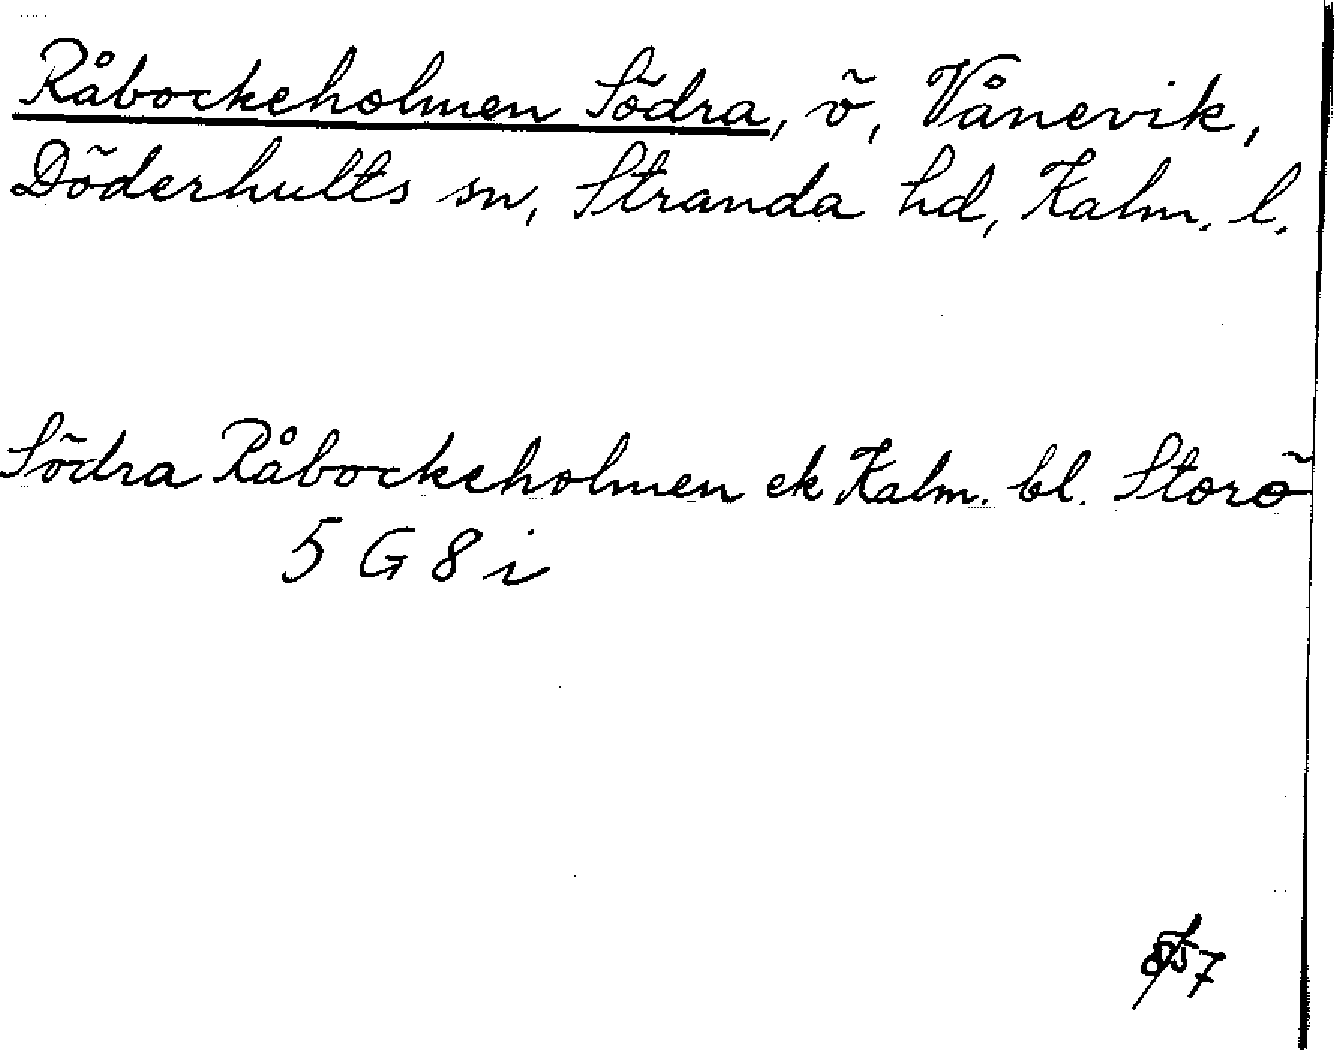 Råbockeholmen Södra, ö, Vånevik,
Döderhults sn, Stranda hd, Kalm. l.
Södra Råbockeholmen ek Kalm. bl. Storö
5 G 8 i